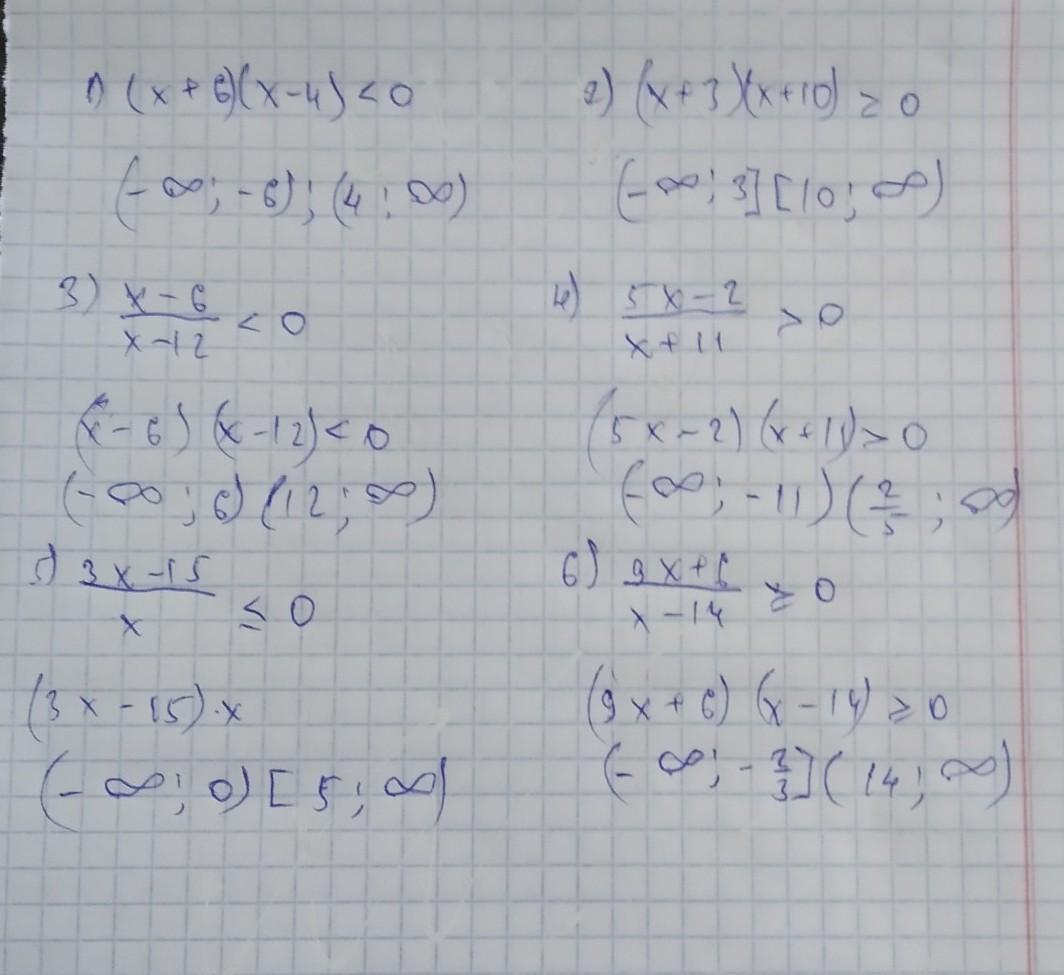 1) (x+6)(x-4)<0
(-∞; -6); (4; ∞)
2) (x+3)(x+10) ≥ 0
(-∞; 3] [10; ∞)
3) (x-6)/(x-12) < 0
(x-6) (x-12)<0
(-∞; 6) (12; ∞)
4) (5x-2)/(x+11) > 0
(5x-2) (x+11)>0
(-∞; -11) (2/5; ∞)
5) (3x-15)/x ≤ 0
(3x-15)·x
(-∞; 0) [5; ∞)
6) (9x+6)/(x-14) ≥ 0
(9x+6) (x-14) ≥ 0
(-∞; -2/3] (14; ∞)